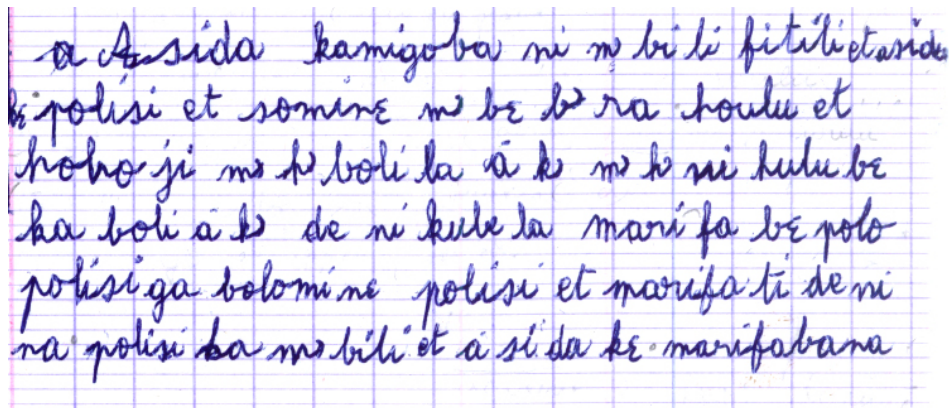 a A sida kamigoba ni mɔ bi li fitili et a sida
kɛ polisi et sominɛ mɔ bɛ bɔ ra houlu et
hoho ji mɔ kɔ boli la á kɔ mɔ h ni kulu bɛ
ka boli a kɔ de ni kule la marifa bɛ polo
polisi ga bolominɛ polisi et marifa ti de ni
na polisi ba mɔ bili et a si da kɛ marifabana